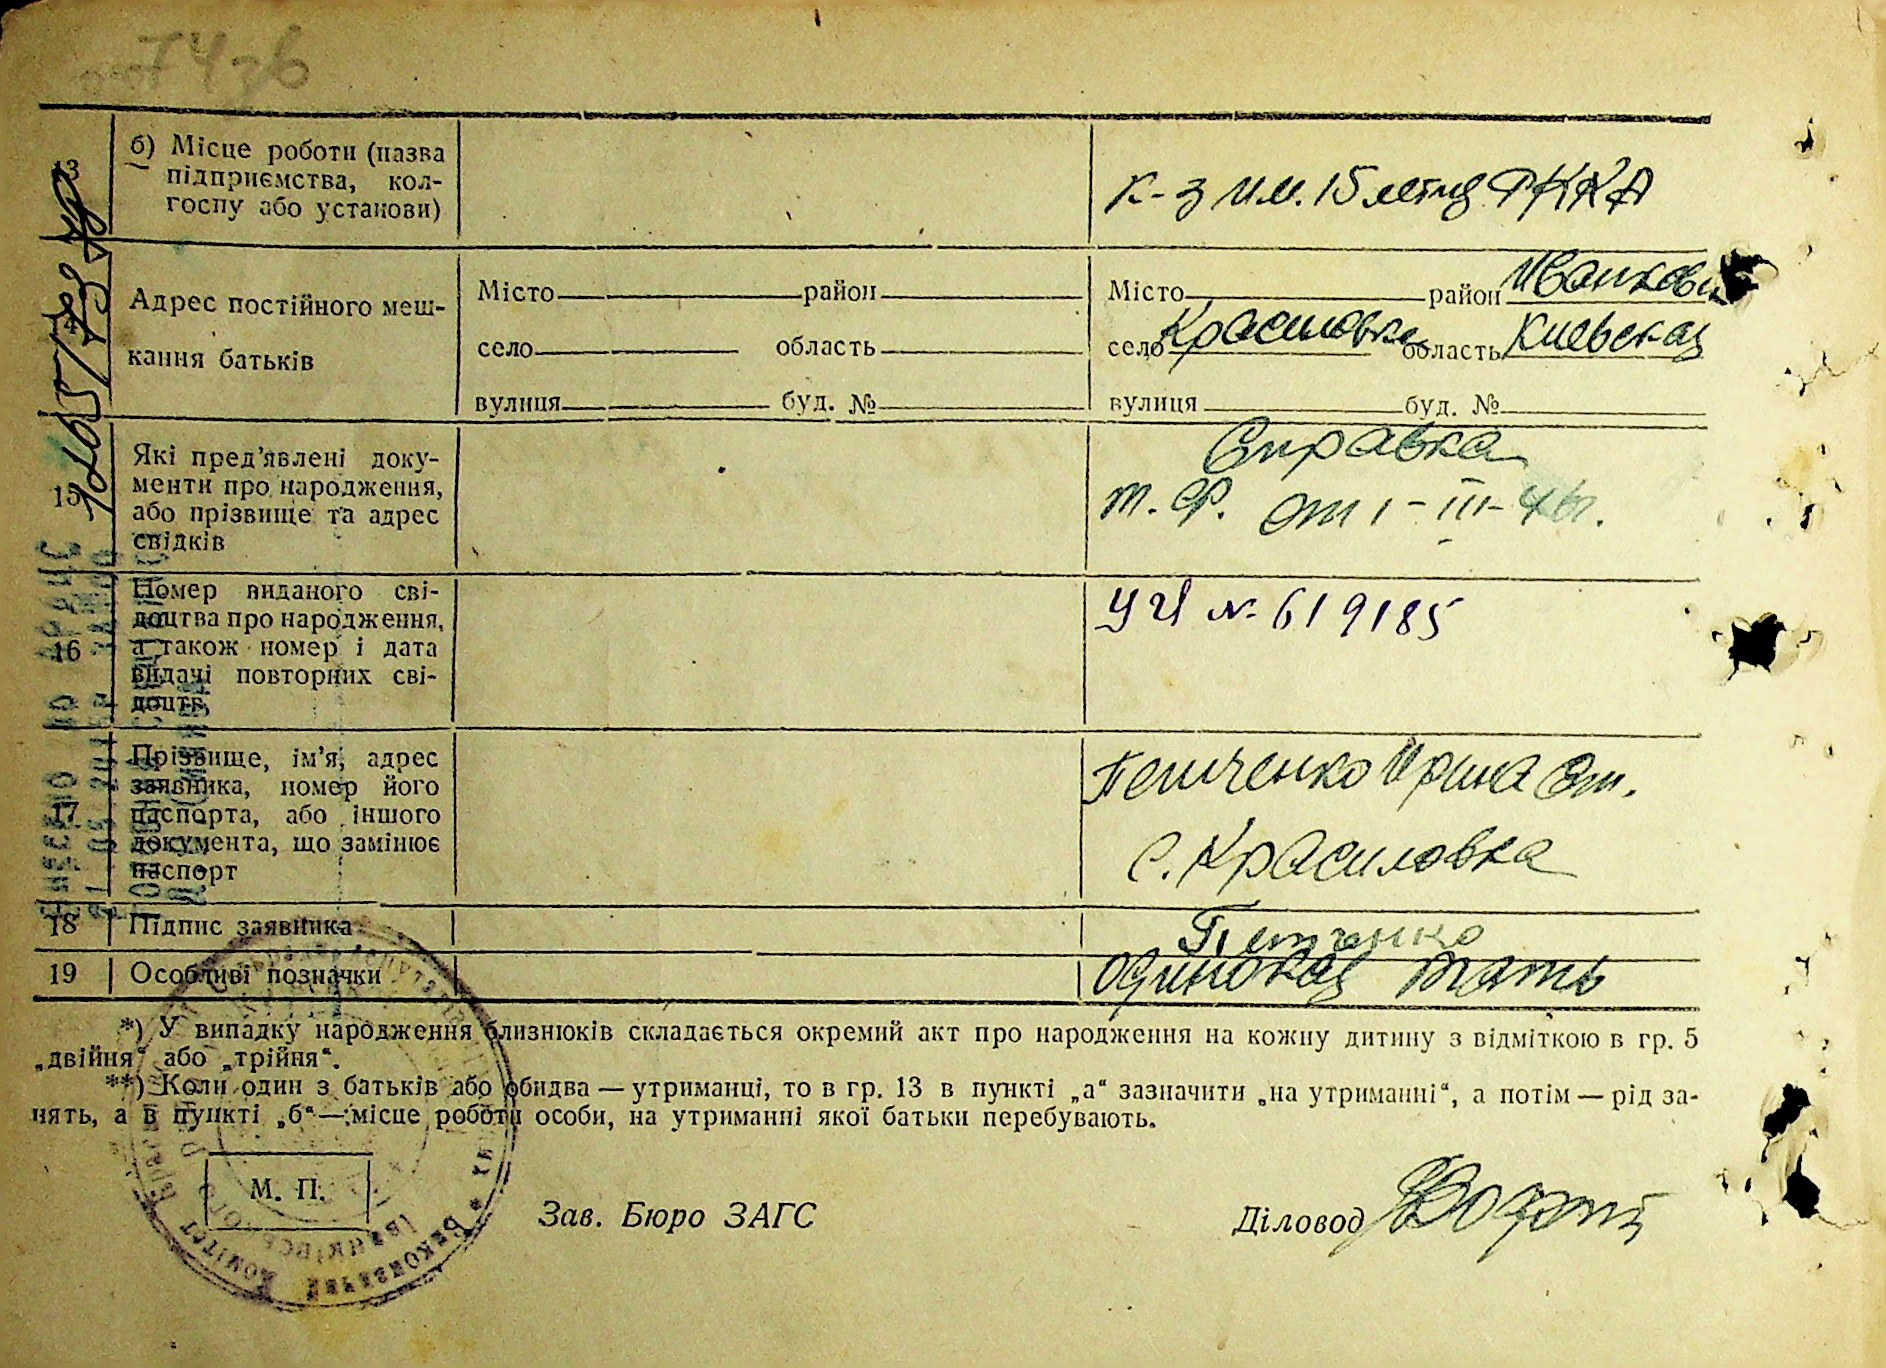 13
б) Місце роботи (назва
підприємства, кол-
госпу або установи)
К-з им. 15 летия РККА
14
Адрес постійного меш-
кання батьків
Місто район
село область
вулиця буд. №
Місто район Иванков
село Красиловка область Киевская
вулиця буд. №
15
Які пред'явлені доку-
менти про народження,
або прізвище та адрес
свідків
Справка
т. Ф. от 1-III-46г.
16
Номер виданого сві-
доцтва про народження,
а також номер і дата
видачі повторних сві-
доцтв
УЧ № 619185
17
Прізвище, ім'я, адрес
заявника, номер його
паспорта, або іншого
документа, що замінює
паспорт
Петченко Ирина
с. Красиловка
18
Підпис заявника
Петченко
19
Особливі позначки
одинокая мать
*) У випадку народження близнюків складається окремий акт про народження на кожну дитину з відміткою в гр. 5
„двійня“ або „трійня“.
**) Коли один з батьків або обидва — утриманці, то в гр. 13 в пункті „а“ зазначити „на утриманні“, а потім — рід за-
нять, а в пункті „б“ — місце роботи особи, на утриманні якої батьки перебувають.
М. П.
Зав. Бюро ЗАГС
Діловод
Виконавчий Комітет